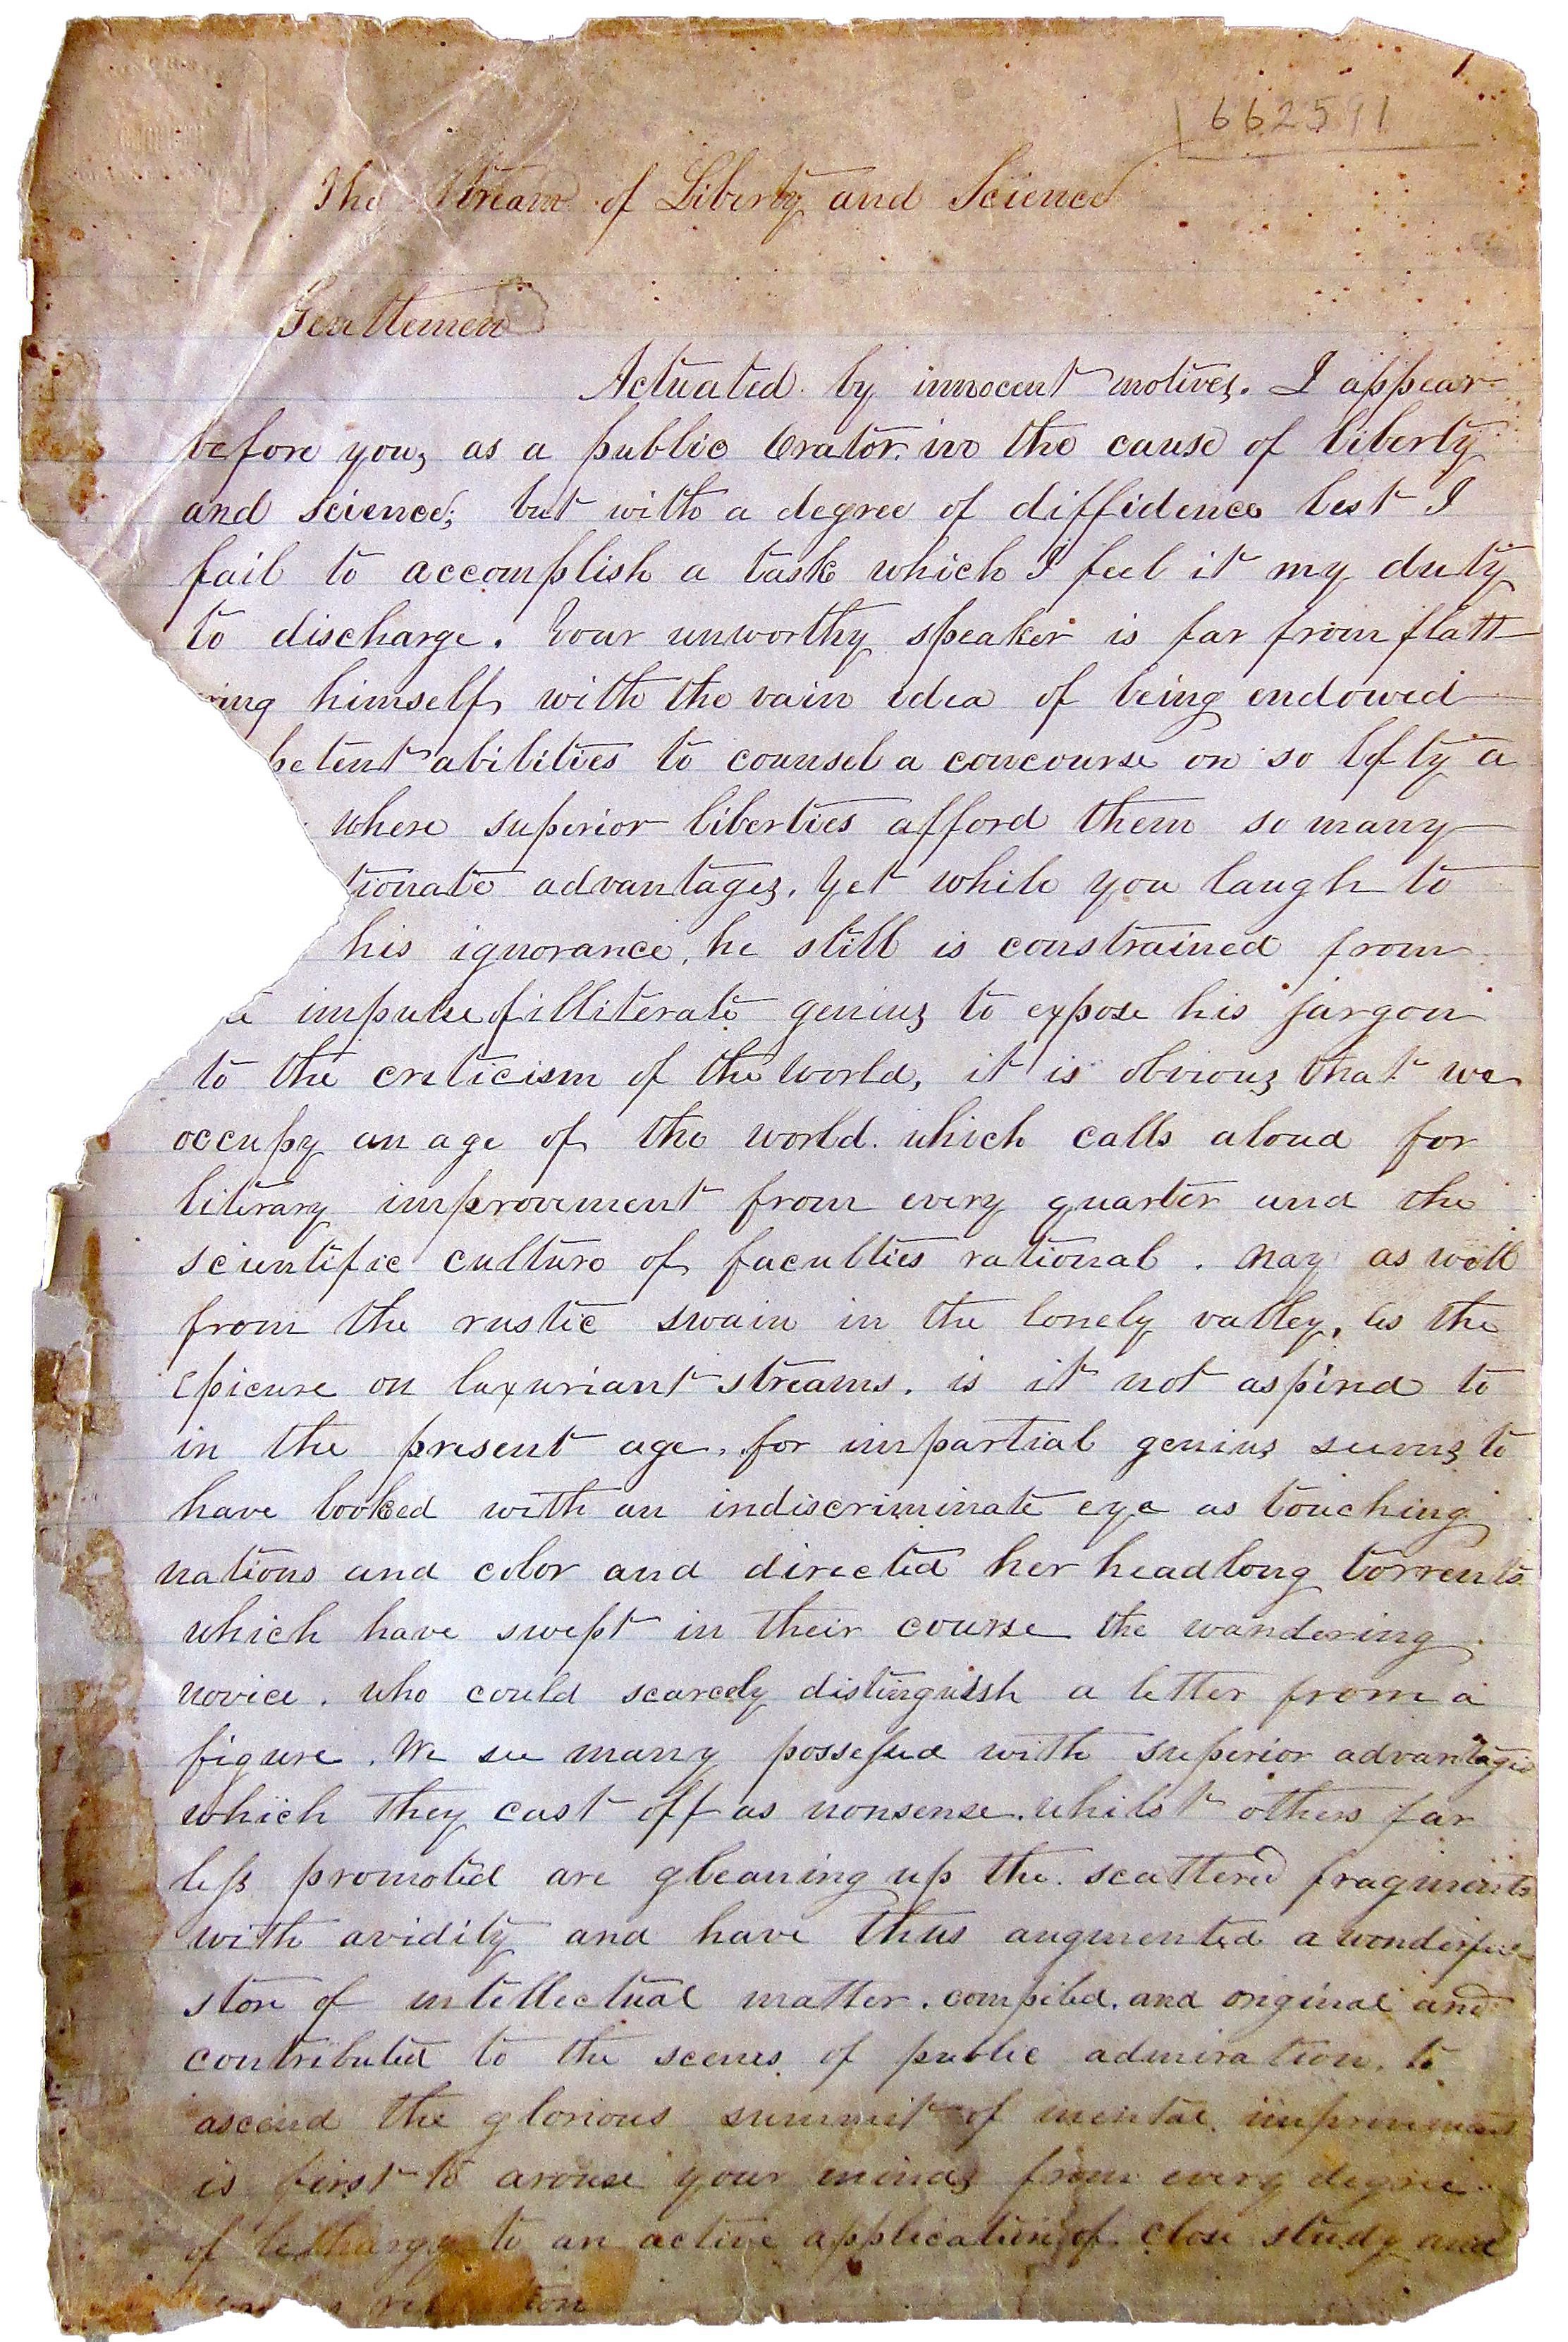 662591
The Stream of Liberty and Science
Gentlemen
Actuated by innocent motives. I appear
before you, as a public Orator in the cause of liberty
and science; but with a degree of diffidence lest I
fail to accomplish a task which I feel it my duty
to discharge. Your unworthy speaker is far from flatt
ring himself with the vain idea of being endowed
petent abilities to counsel a concourse on so lofty a
where superior liberties afford them so many
tionate advantages. Yet while you laugh to
his ignorance, he still is constrained from
impulse of illiterate genius to expose his jargon
to the criticism of the world, it is obvious that we
occupy an age of the world. which calls aloud for
literary improvement from every quarter and the
scientific culture of faculties rational. Nay as well
from the rustic swain in the lonely valley, as the
epicure on luxuriant streams. is it not aspired to
in the present age, for impartial genius seems to
have looked with an indiscriminate eye as touching
nations and color and directed her headlong torrents
which have swept in their course the wandering
novice. who could scarcely distinguish a letter from a
figure. We see many possessed with superior advantages
which they cast off as nonsense. whilst others far
less promoted are gleaning up the scattered fragments
with avidity and have thus augmented a wonderful
store of intellectual matter. compiled. and original and
contributed to the scenes of public admiration. to
ascend the glorious summit of mental improvement
is first to arouse your minds from every degree
of lethargy to an active application of close study and